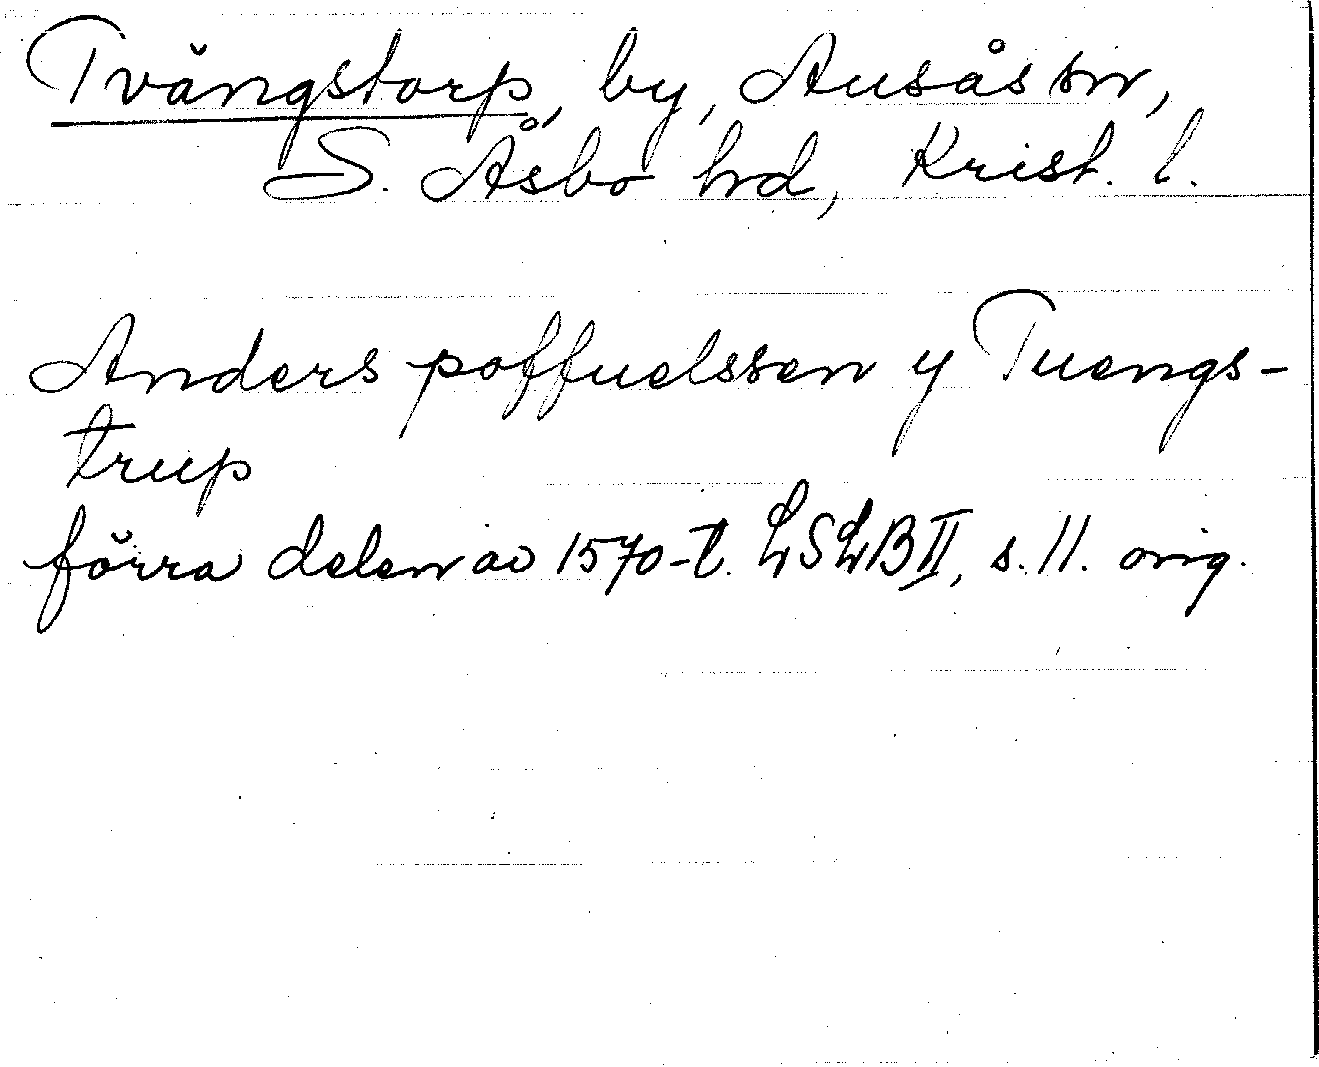 Tvängstorp, by, Ausås sn,
S. Åsbo hd, Krist. l.
Anders poffuelssen y Tuengs-
trup
förra delen av 1570-t. LSLB II, s. 11. orig.